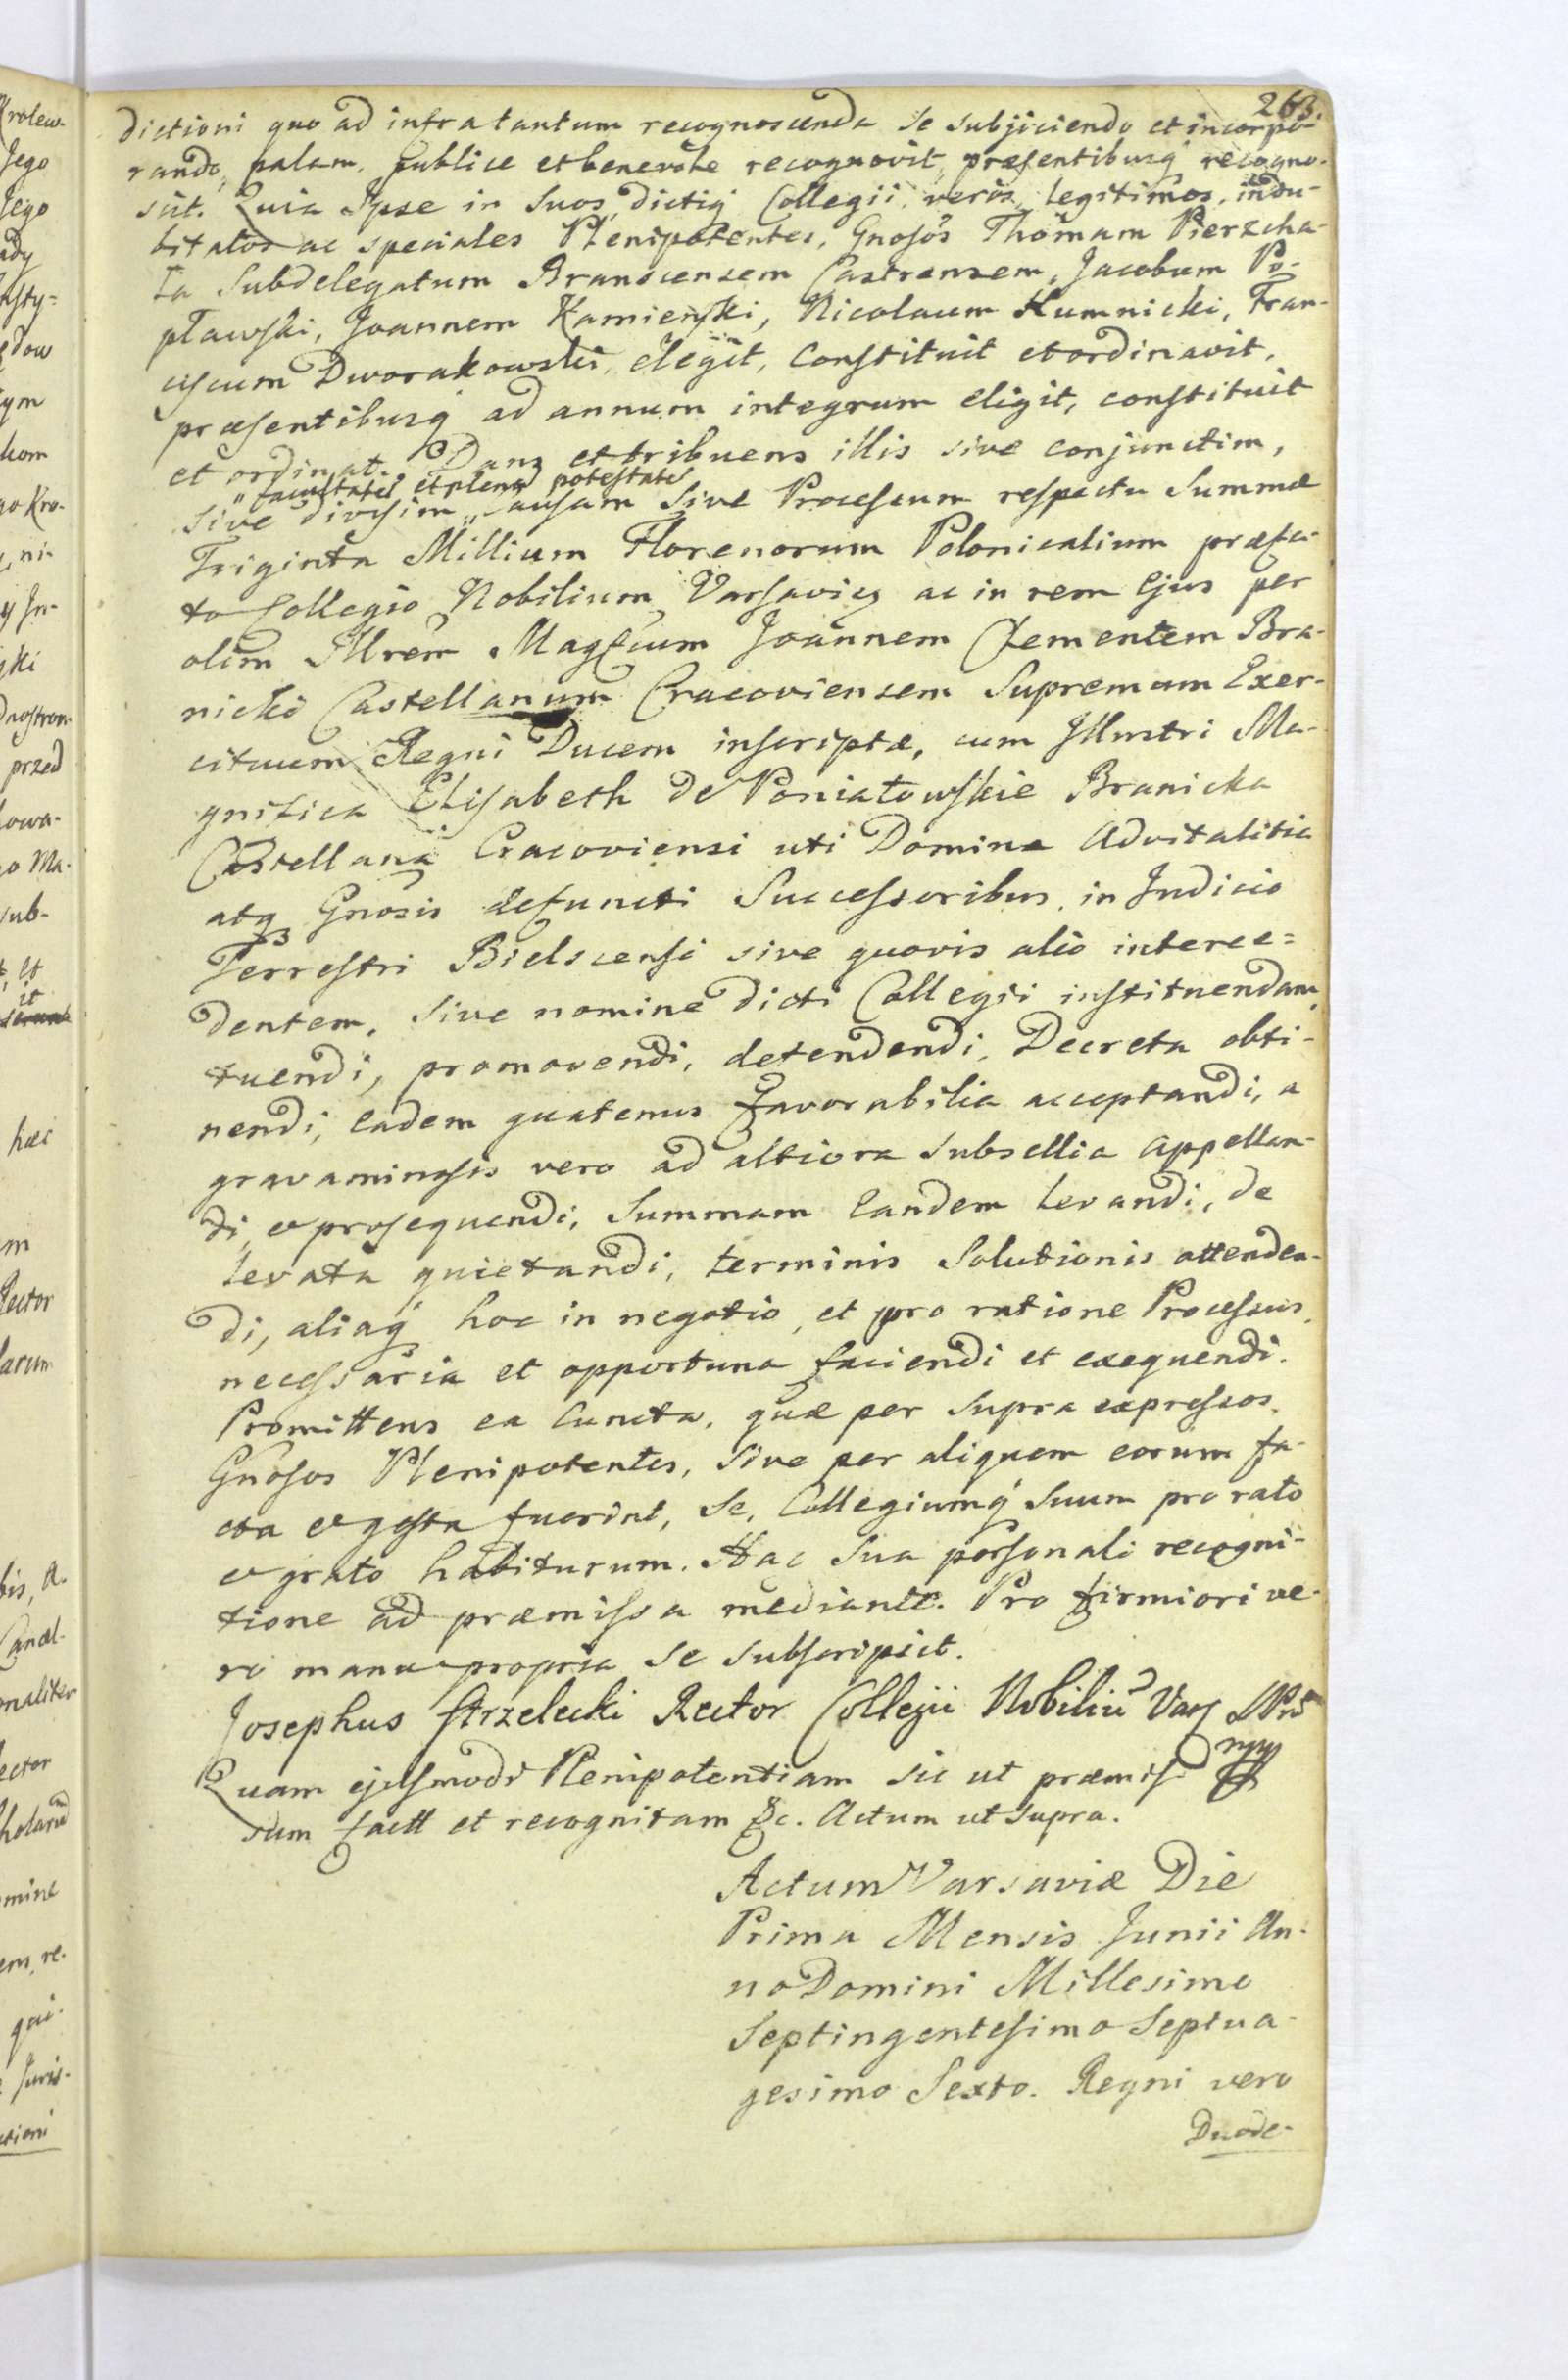 263.
dictioni quo ad infra tantum recognoscenda se subjiciendo et incorpo-
rando, palam, publice et benevole recognovit, præsentibusq́ recogno-
scit. Quia Ipse in suos, dictiq́ Collegii, veros, legitimos, indu-
bitatos ac speciales Plenipotentes, Gnosos Thomam Pierzcha-
ła Subdelegatum Branscensem Castrensem, Jacobum Po-
pławski, Joannem Kamieński, Nicolaum Kumnicki, Fran-
ciscum Dworakowski, elegit, constituit et ordinavit,
præsentibusq́ ad annum integrum eligit, constituit
et ordinat. Dans et tribuens illis sive conjunctim,
" facultatē et plenā potestatē
sive divisim " causam sive Processum respectu Summæ
Triginta Millium Florenorum Polonicalium præfa-
to Collegio Nobilium Varsavien ac in rem Ejus per
olim Illrem Magficum Joannem Clementem Bra-
nicki Castellanum Cracoviensem Supremum Exer-
cituum Regni Ducem inscriptæ, cum Illustri Ma-
gnifica Elisabeth de Poniatowskie Branicka
Castellana Cracoviensi uti Domina Advitalitia
atq Gnosis defuncti Successoribus, in Judicio
Terrestri Bielscensi sive quovis alio interce=
dentem, sive nomine dicti Collegii instituendam,
tuendi, promovendi, defendendi, Decreta obti-
nendi, eadem quatenus favorabilia acceptandi, a
gravaminosis vero ad altiora subsellia appellan-
di, & prosequendi, Summam eandem levandi, de
levata quietandi, terminis Solutionis attenden-
di, aliaq́ hoc in negotio, et pro ratione Processus,
necessaria et opportuna faciendi et exequendi.
Promittens ea cuncta, quæ per supra expressos
Gnosos Plenipotentes, sive per aliquem eorum fa-
cta & gesta fuerint, se, Collegiumq́ suum pro rato
& grato habiturum. Hac sua personali recogni-
tione ad præmissa mediante. Pro firmiori ve-
ro manu propria se subscripsit.
Josephus Strzelecki Rector Collegii Nobiliū Vars
Quam ejusmodi Plenipotentiam sic ut præmis-
sum factt et recognitam &c. Actum ut supra.
Actum Varsaviæ Die
Prima Mensis Junii An-
no Domini Millesimo
Septingentesimo Septua-
gesimo Sexto. Regni vero
Duode-